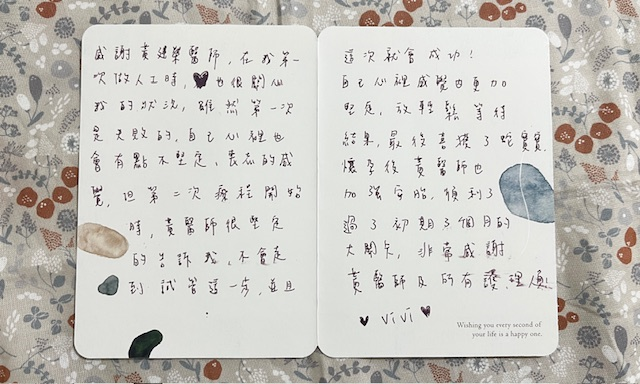 感謝黃建榮醫師,在我第一
次做人工時,♥也很關心
我的狀況,雖然第一次
是失敗的,自己心裡也
會有點不堅定、喪志的感
覺,但第二次療程開始
時,黃醫師很堅定
的告訴我,不會走
到試管這一步,並且
這次就會成功!
自己心裡感覺也更加
堅定,放輕鬆等待
結果,最後喜獲了蛇寶寶,
懷孕後黃醫師也
加強安胎,順利了
過了初期3個月的
大關卡,非常感謝
黃醫師及所有護理人員!!
♥ ViVi ♥
Wishing you every second of
your life is a happy one.